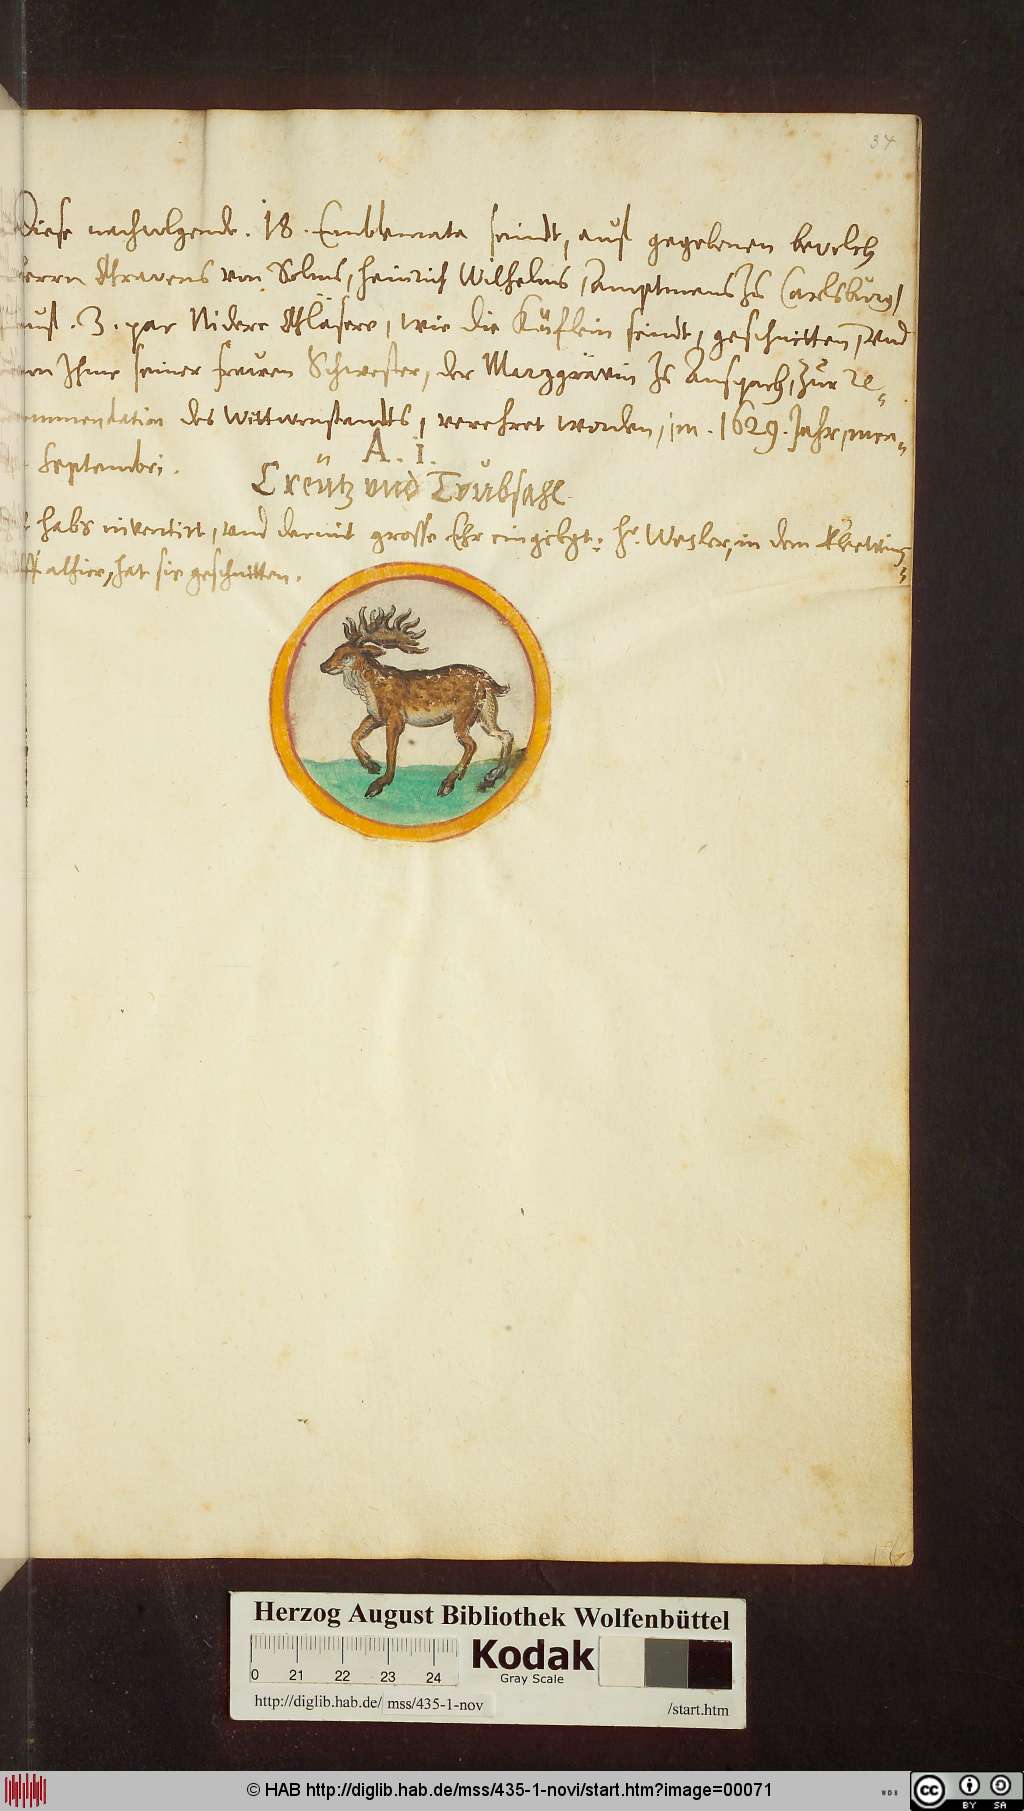 34
Diese nachvolgende . 18 . Emblemata seindt, auß gegebenem bevelch
Herrn Gravens von Solms, Heinrich Wilhelms, Amptmans zů Carlsburg,
auß . 3 . par Nidere Gläsere, wie die Küflein seindt, geschnitten, vnd
von Ihme seiner frawen Schwester, der Marggrävin zů Anspach, zůr re„
commendation des Wittwenstandts, verehret worden, im . 1629 . Jahr, men„
Septembri .
A . I .
Creütz und Trůbsahl
habs inventirt, vnd darmit grosse Ehr eingelegt: Hr. Wetzler, in dem
alhier, hat sie geschnitten .
Herzog August Bibliothek Wolfenbüttel
0 21 22 23 24
Kodak
Gray Scale
http://diglib.hab.de/ mss/435-1-nov /start.htm
© HAB http://diglib.hab.de/mss/435-1-novi/start.htm?image=00071
WDB
cc BY SA